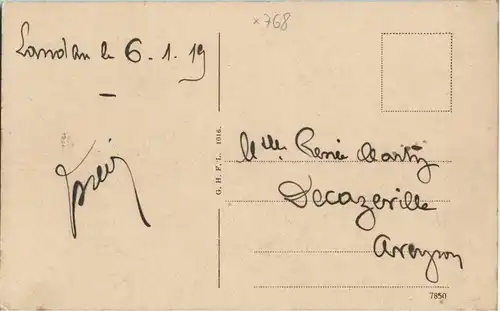 x768
Landau le 6.1.19
G. H. F. L. 1916.
Mlle Renée Marty
Decazeville
Aveyron
7850